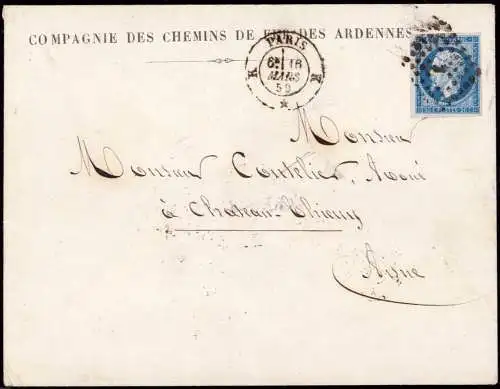 COMPAGNIE DES CHEMINS DE FER DES ARDENNES
PARIS
K K
6E 16
MARS
59
Monsieur
Monsieur Coutelier, Avoué
à Chateau-Thierry
Aisne